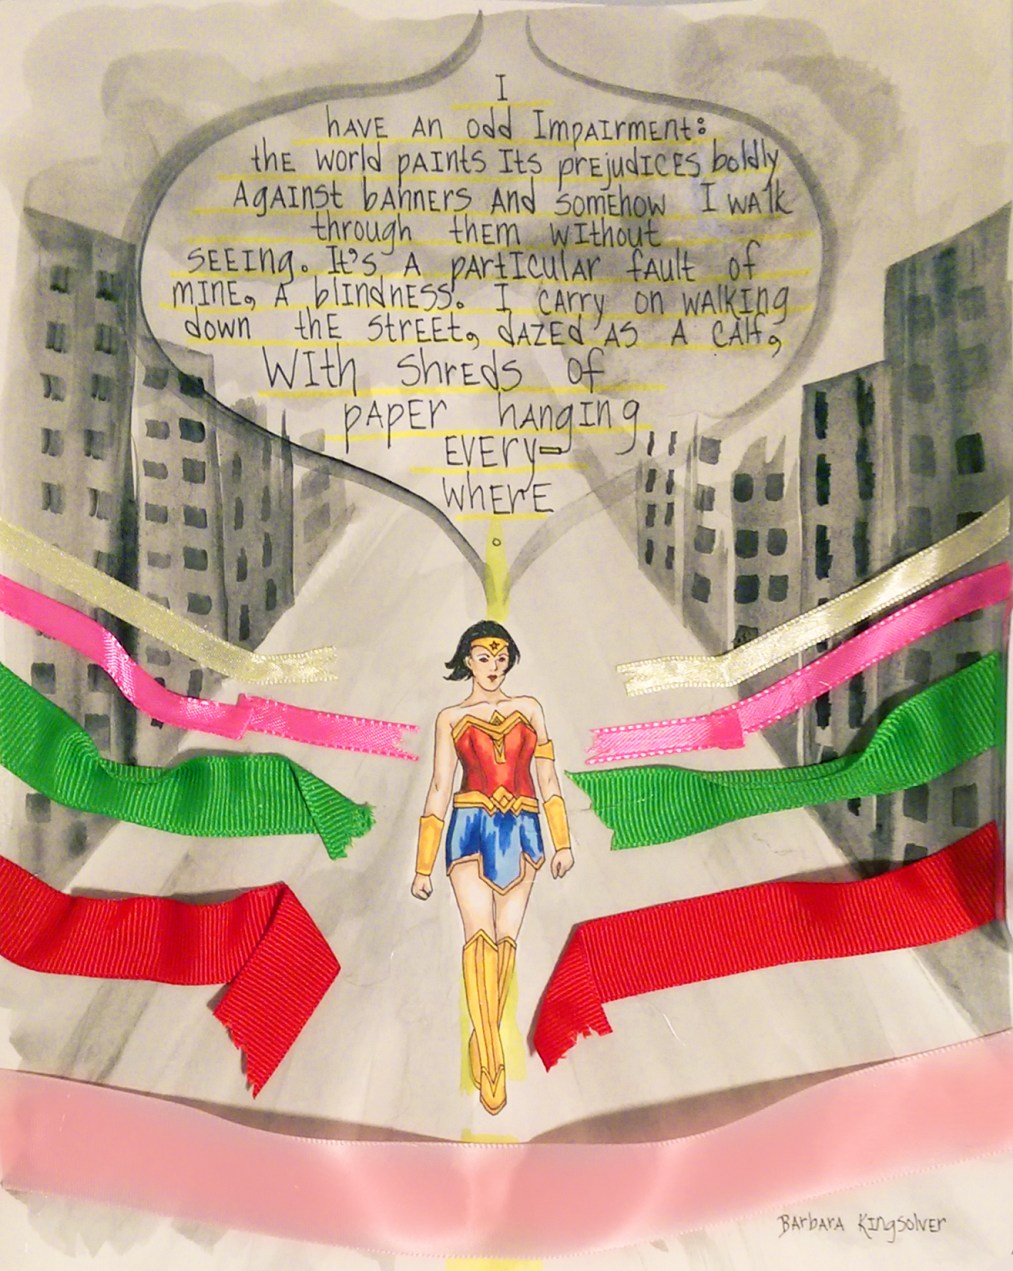 I
HAVE AN odd ImpAIrMENt:
thE world pAINts Its prEjudICES boldly
AgAINst bANNErs ANd somEhow I wAlk
through thEm wIthout
SEEINg. It's A pArtICulAr fAult of
mINE, A blINdNESS. I CArry oN wAlkINg
dowN thE strEEt, dAZEd AS A CAlf,
wIth shrEds of
pApEr hANgINg
EVEry-
whErE.
BArbArA KINgsolVEr